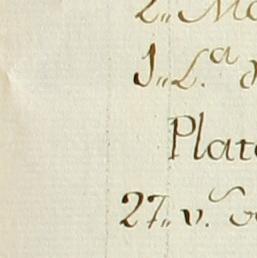 2,, Mo
1,, L.ª d
Plato
27,, v.